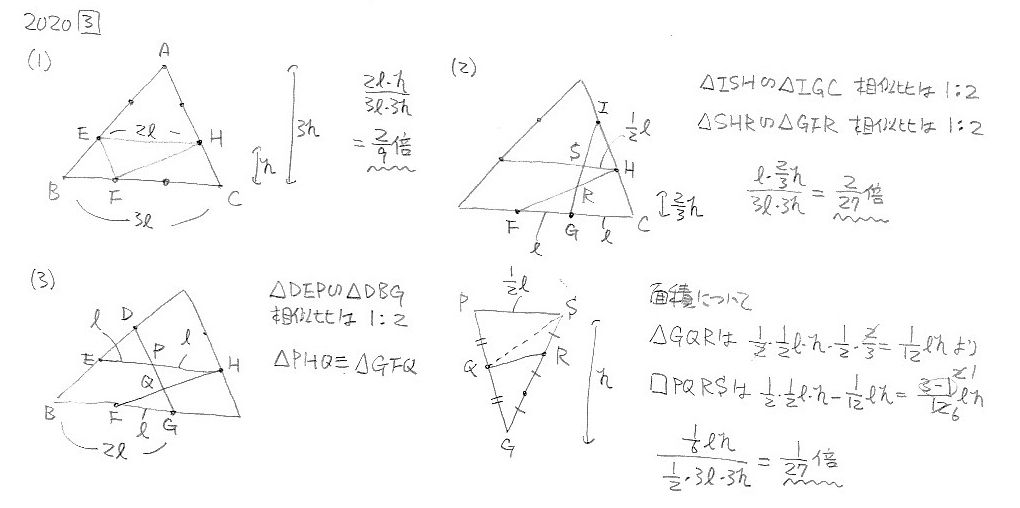 2020 3
(1)
A
E 2l H
B F C
3l
h
3h
2l·h
3l·3h
= 2/9 倍
(2)
I
S H
1/2 l
R
F G C
l l
2/3 h
△ISH∽△IGC 相似比は 1:2
△SHR∽△GFR 相似比は 1:2
l·2/3h / 3l·3h = 2/27 倍
(3)
D
l P l
E H
Q
B F G
l
2l
△DEP∽△DBG
相似比は 1:2
△PHQ≡△GFQ
1/2 l
P S
Q R
G
h
面積について
△GQRは 1/2·1/2 l·h·1/2·2/3 = 1/12 lh より
□PQRSは 1/2·1/2 l·h − 1/12 lh = 3−1 2 1 / 12 6 lh
1/6 lh / 1/2·3l·3h = 1/27 倍